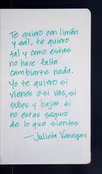 Te quiero con limón
y sal, te quiero
tal y como estás
no hace falta
cambiarte nada.
Yo te quiero si
vienes o si vas, si
subes y bajas si
no estás seguro
de lo que sientes
— Julieta Venegas